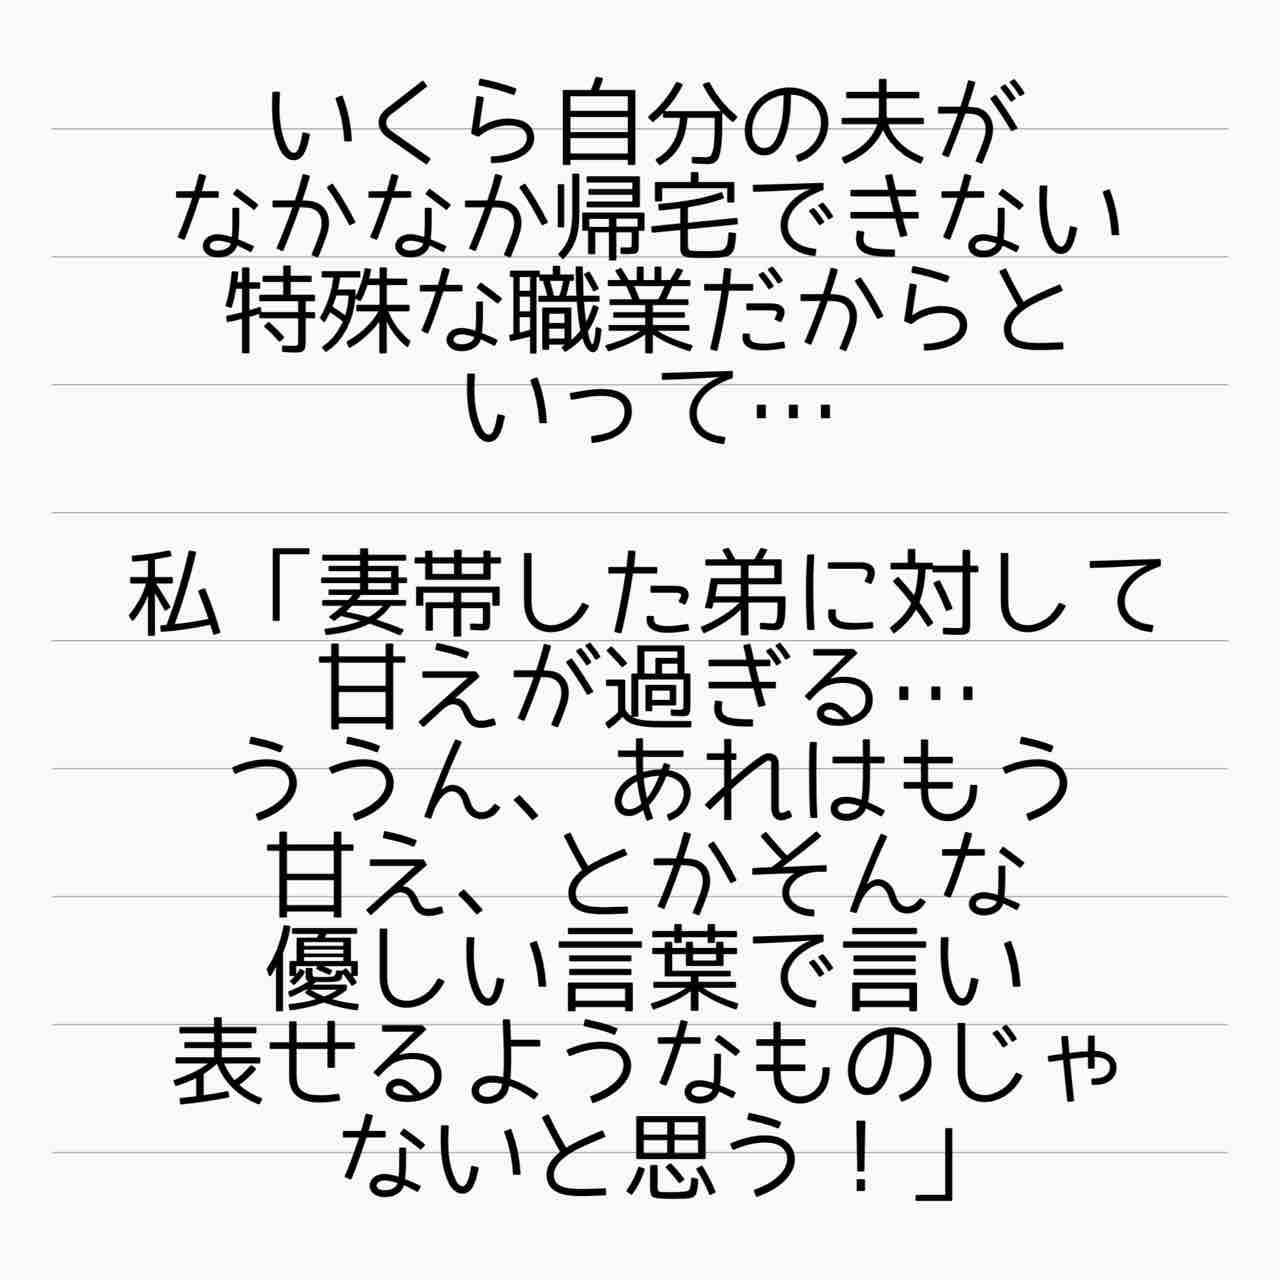 いくら自分の夫が
なかなか帰宅できない
特殊な職業だからと
いって…
私「妻帯した弟に対して
甘えが過ぎる…
ううん、あれはもう
甘え、とかそんな
優しい言葉で言い
表せるようなものじゃ
ないと思う！」